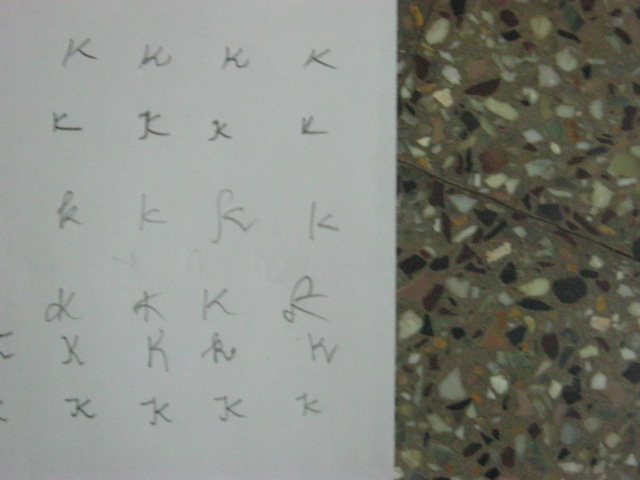 K K K K
K K K K
k K K K
K K K
K K k K
K K K K